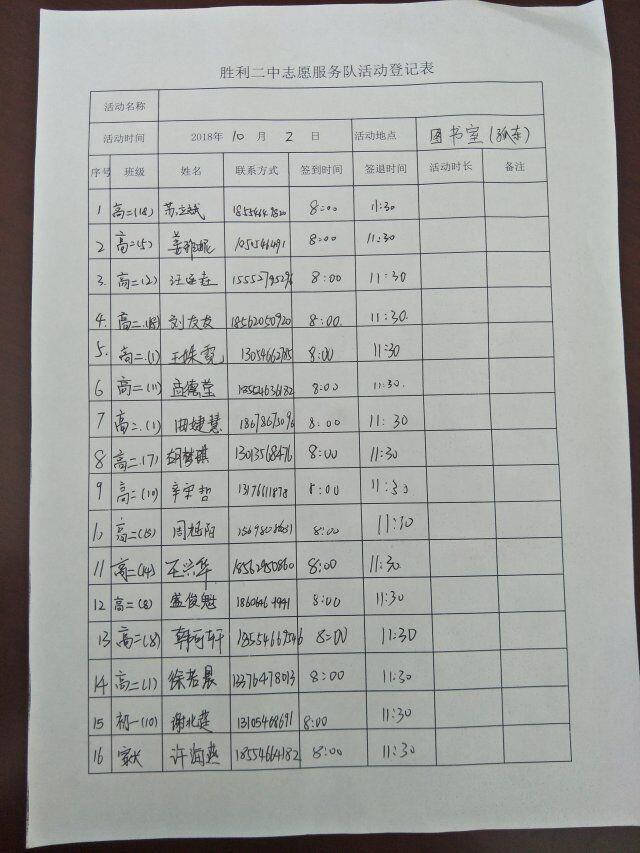 胜利二中志愿服务队活动登记表
活动名称
活动时间 2018年 10 月 2 日 活动地点 图书室(孤东)
序号 班级 姓名 联系方式 签到时间 签退时间 活动时长 备注
1 高二(18) 8:00 11:30
2 高二(5) 8:00 11:30
3. 高二(2) 15552795296 8:00 11:30
4. 高二.(18) 刘友友 18562050920 8:00. 11:30.
5. 高二.(1) 8:00 11:30
6 高二(11) 18554636182 8:00 11:30.
7 高二.(1) 田婕慧 18678675096 8:00 11:30
8 高二.(7) 胡梦琪 13013568476 8:00 11:30
9 高二(10) 辛宋哲 13176611878 8:00 11:30
10 高二(15) 周旭阳 8:00
11 高二(14) 王兴华 18562950860 8:00 11:30
12 高二(8) 盛俊魁 8:00 11:30
13 高二(8) 韩可轩 18554669546 8:00 11:30
14 高二(1) 徐若晨 13376478013 8:00 11:30
15 初一(10) 谢北莲 13105468691 8:00 11:30
16 家长 许海燕 18554664182 8:00 11:30